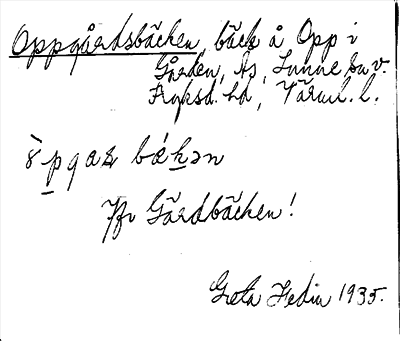 Oppgårdsbäcken, bäck å Opp i
Gården, Ås, Sunne sn v.
Fryksd. hd, Värml. l.
òpgaz bækən
Jfr Gårdbäcken!
Greta Hedin 1935.